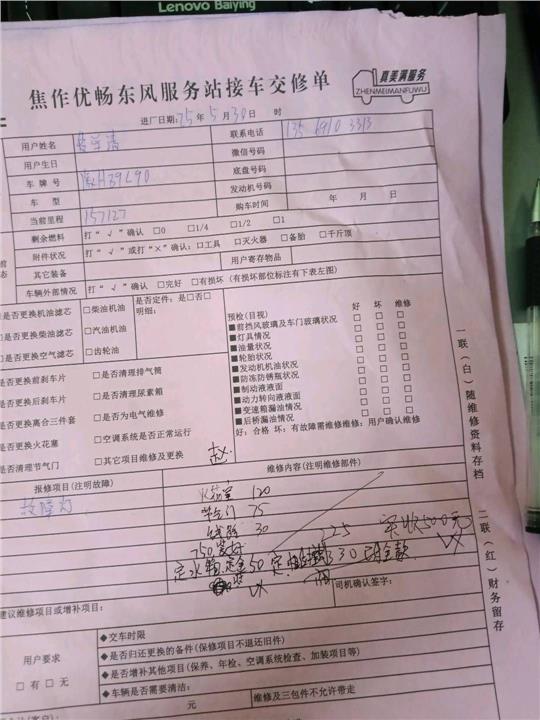 Lenovo Baiying
焦作优畅东风服务站接车交修单
真美满服务
ZHENMEIMANFUWU
进厂日期: 25 年 5 月 30 日 时
用户姓名
联系电话 135 6910 3313
用户生日
微信号码
车 牌 号 H39L90
底盘号码
车 型
发动机号码
当前里程 157127
购车时间 年 月 日
剩余燃料 打“√”确认 □0 □1/4 □1/2 □1
附件状况 打“√”或打“×”确认: □工具 □灭火器 □备胎 □千斤顶
其它装备 用户寄存物品
车辆外部情况 打“√”确认 □完好 □有损坏 (有损坏部位标注有下表左图)
是否更换机油滤芯 □柴油机油
是否定件: 是□否□
明细:
是否更换柴油滤芯 □汽油机油
是否更换空气滤芯 □齿轮油
预检(目视) 好 坏 维修
■前挡风玻璃及车门玻璃状况 □ □ □
■灯具情况 □ □ □
■油量状况 □ □ □
■轮胎状况 □ □ □
■发动机机油状况 □ □ □
■防冻防锈瓶状况 □ □ □
■制动液液面 □ □ □
■动力转向液液面 □ □ □
■变速箱漏油情况 □ □ □
■后桥漏油情况 □ □ □
好: 合格 坏: 有故障需维修维修: 用户确认维修
是否更换前刹车片 □是否清理排气筒
是否更换后刹车片 □是否清理尿素箱
是否更换离合三件套 □是否为电气维修
是否更换火花塞 □空调系统是否正常运行
是否清理节气门 □其它项目维修及更换
赵
报修项目(注明故障) 维修内容(注明维修部件)
故障灯
火花塞 120
节气门 75
线路 30
225 实收500元
定水箱 定金50
30
司机确认签字:
建议维修项目或增补项目:
用户要求
□有 □无
◆交车时限
◆是否归还更换的备件 (保修项目不退还旧件)
◆是否增补其他项目 (保养、年检、空调系统检查、加装项目等)
◆车辆是否需要清洁:
元 维修及三包件不允许带走
一联(白)随维修资料存档
二联(红)财务留存